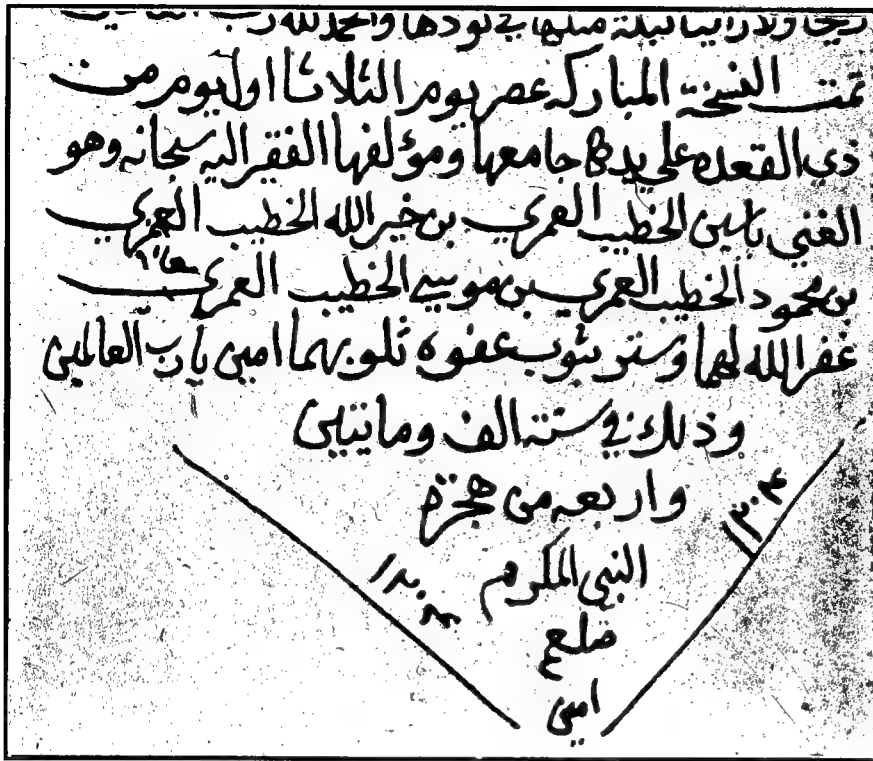 ريحا ولا راينا ليلة مثلها في نودها والحمد لله رب
تمت النسخة المباركه عصر يوم الثلاثا اول يوم من
ذي القعده على يد جامعها ومؤلفها الفقر اليه سبحانه وهو
الغني ياسين الخطيب العمري بن خير الله الخطيب العمري
بن محمود الخطيب العمري بن موسي الخطيب العمري
غفر الله لهما وستر بثوب عفوه ثلوبهما امين يا رب العالمين
وذلك في سنة الف وماتيين
واربعه من هجرة
١٢٠٤
النبي المكرم
١٢٠٤
صلعم
امين